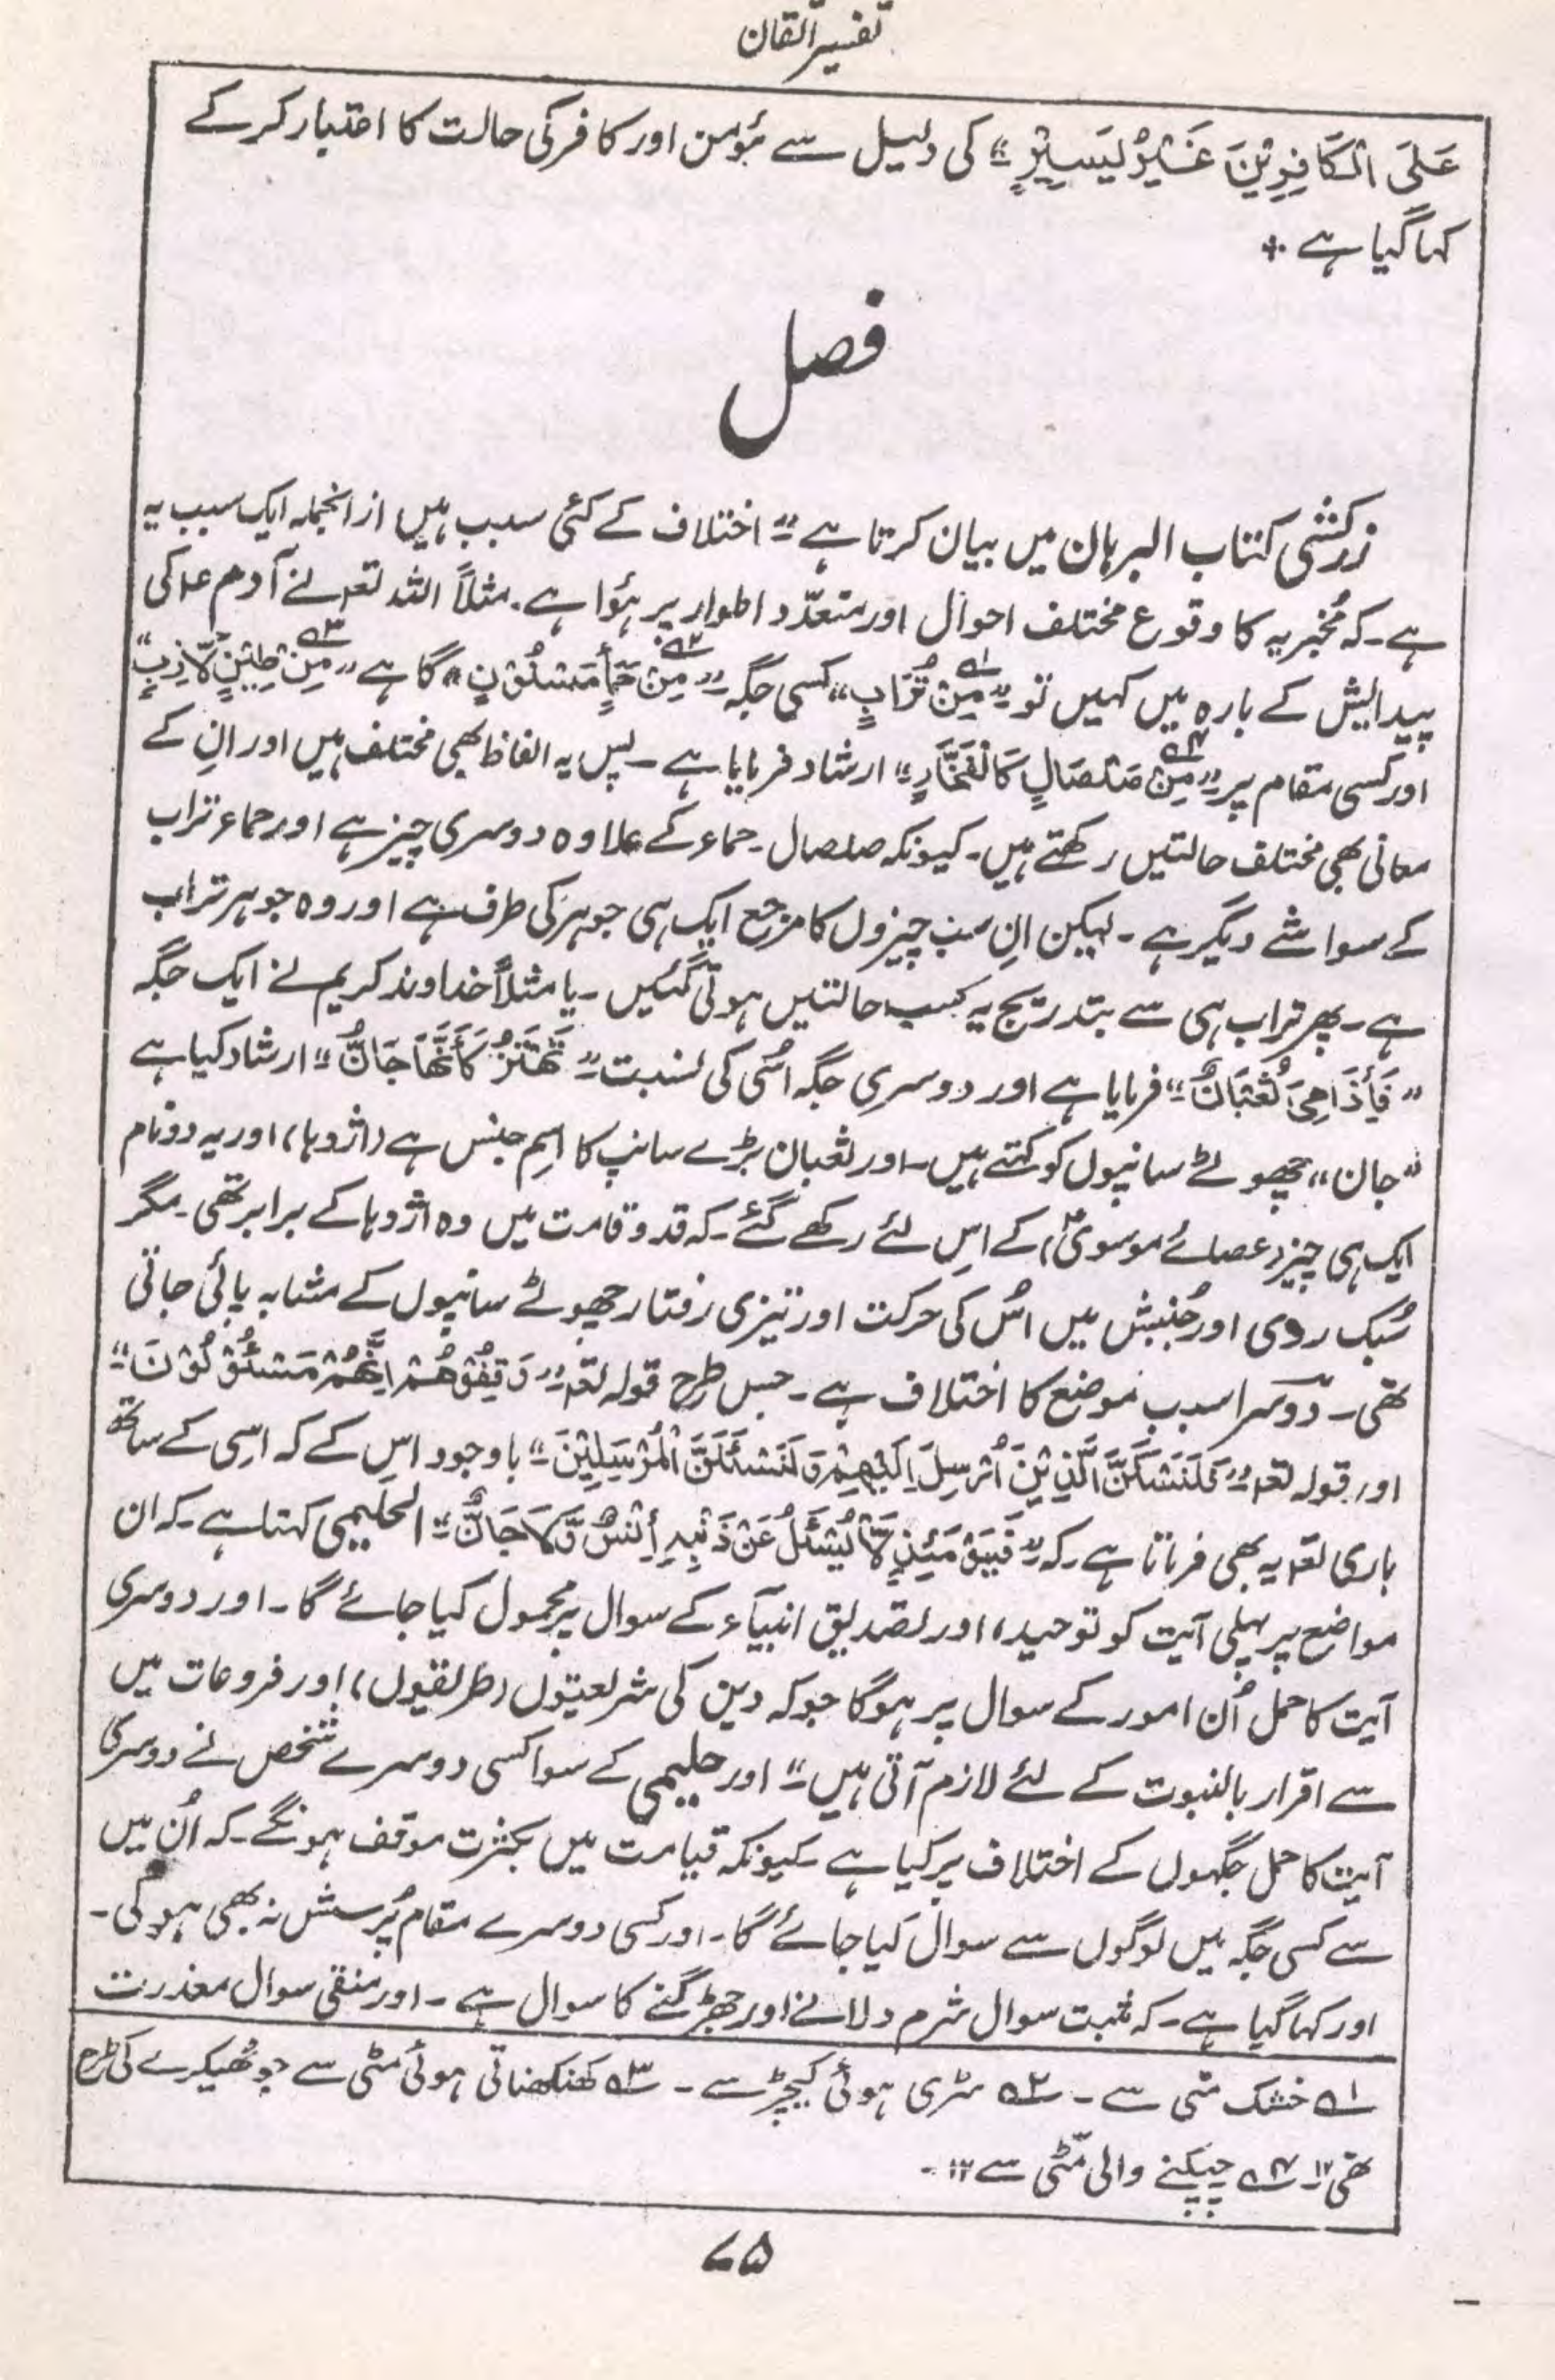 تفسیر اتقان
عَلَی الْکَافِرِیْنَ غَیْرُ یَسِیْرٍ" کی دلیل سے مؤمن اور کافر کی حالت کا اعتبار کر کے
کہا گیا ہے +
فصل
زرکشی کتاب البرہان میں بیان کرتا ہے" اختلاف کے کئی سبب ہیں از انجملہ ایک سبب یہ
ہے۔ کہ مُخبر بہ کا وقوع مختلف احوال اور متعدّد اطوار پر ہؤا ہے۔ مثلاً اللہ تعہ نے آدم عہ کی
پیدایش کے بارہ میں کہیں تو "مِنْ تُرَابٍ" کسی جگہ "مِنْ حَمَأٍ مَسْنُوْنٍ" گا ہے "مِنْ طِیْنٍ لَّا زِبٍ"
اور کسی مقام پر "مِنْ صَلْصَالٍ کَالْفَخَّارِ" ارشاد فرمایا ہے۔ پس یہ الفاظ بھی مختلف ہیں اور اِن کے
معانی بھی مختلف حالتیں رکھتے ہیں۔ کیونکہ صلصال۔ حماء کے علاوہ دوسری چیز ہے اور حماء تراب
کے سوا شے دیگر ہے۔ لیکن اِن سب چیزوں کا مرجع ایک ہی جوہر کی طرف ہے اور وہ جوہر تراب
ہے۔ پھر تراب ہی سے بتدریج یہ سب حالتیں ہوتی گئیں۔ یا مثلاً خداوند کریم نے ایک جگہ
"فَأِذَا هِیَ ثُعْبَانٌ" فرمایا ہے اور دوسری جگہ اُسی کی نسبت "تَهْتَزُّ کَأَنَّهَا جَانٌّ" ارشاد کیا ہے
"جان" چھوٹے سانپوں کو کہتے ہیں۔ اور ثعبان بڑے سانپ کا اسِم جنس ہے (اژدہا) اور یہ دو نام
ایک ہی چیز (عصائے موسویؑ) کے اِس لئے رکھے گئے۔ کہ قد و قامت میں وہ اژدہا کے برابر تھی۔ مگر
سُبک روی اور جُنبش میں اُس کی حرکت اور تیزی رفتار چھوٹے سانپوں کے مشابہ پائی جاتی
تھی۔ دوسرا سبب موضع کا اختلاف ہے۔ جس طرح قولہ تعہ "وَقِفُوْهُمْ اِنَّهُمْ مَسْئُوْلُوْنَ"
اور قولہ تعہ "فَلَنَسْئَلَنَّ الَّذِیْنَ أُرْسِلَ اِلَیْهِمْ وَلَنَسْئَلَنَّ الْمُرْسَلِیْنَ" باوجود اِس کے کہ اسِی کے ساتھ
باری تعہ یہ بھی فرماتا ہے۔ کہ "فَیَوْمَئِذٍ لَّا یُسْئَلُ عَنْ ذَنْبِهِ أِنْسٌ وَّلَا جَانٌّ" الحلیمی کہتا ہے۔ کہ ان
مواضع پر پہلی آیت کو توحید، اور تصدیق انبیآء کے سوال پر محمول کیا جائے گا۔ اور دوسری
آیت کا حمل اُن امور کے سوال پر ہوگا جو کہ دین کی شریعتوں (طریقوں)، اور فروعات میں
سے اقرار بالنبوت کے لئے لازم آتی ہیں" اور حلیمی کے سوا کسی دوسرے شخص نے دوسری
آیت کا حمل جگہوں کے اختلاف پر کیا ہے۔ کیونکہ قیامت میں بکثرت موقف ہونگے۔ کہ اُن میں
سے کسی جگہ میں لوگوں سے سوال کیا جائے گا۔ اور کسی دوسرے مقام پُرسش نہ بھی ہو گی۔
اور کہا گیا ہے۔ کہ مثبت سوال شرم دلانے اور جھڑکنے کا سوال ہے۔ اور منفی سوال معذرت
۱ھ خشک مٹی سے۔ ۲ھ سڑی ہوئی کیچڑ سے۔ ۳ھ کھنکھناتی ہوئی مٹی سے جو ٹھیکرے کی طرح
تھی ۱۲۔ ۴ھ چپکنے والی مٹی سے ۱۲۔
۷۵